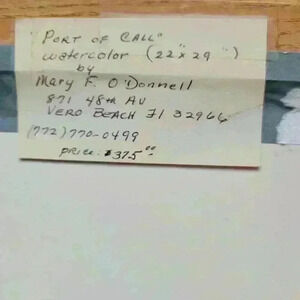 "PORT OF CALL"
watercolor (22" x 29")
by
Mary F. O'Donnell
871 48th AV
VERO BEACH Fl 32966
(772) 770-0499
price: $375.00